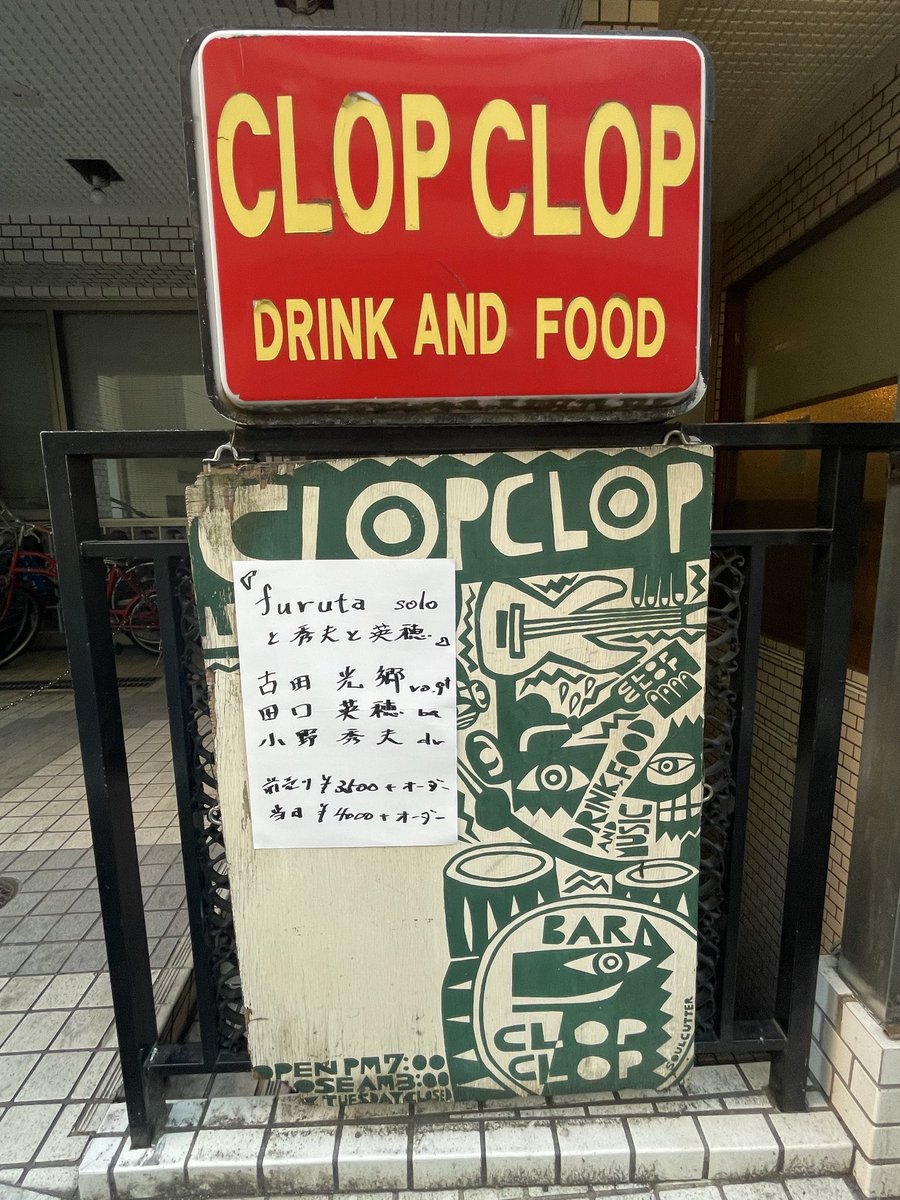 CLOP CLOP
DRINK AND FOOD
CLOPCLOP
『furuta solo
と秀夫と英穂』
古田 光郷 vo.gt
田口 英穂 ba
小野 秀夫 dr
前売り ¥3500+オーダー
当日 ¥4000+オーダー
CLOP
CLOP
DRINK, FOOD
AND
MUSIC
BAR
CLOP
CLOP
SOULCUTTER
OPEN PM 7:00
CLOSE AM 3:00
TUESDAY CLOSED